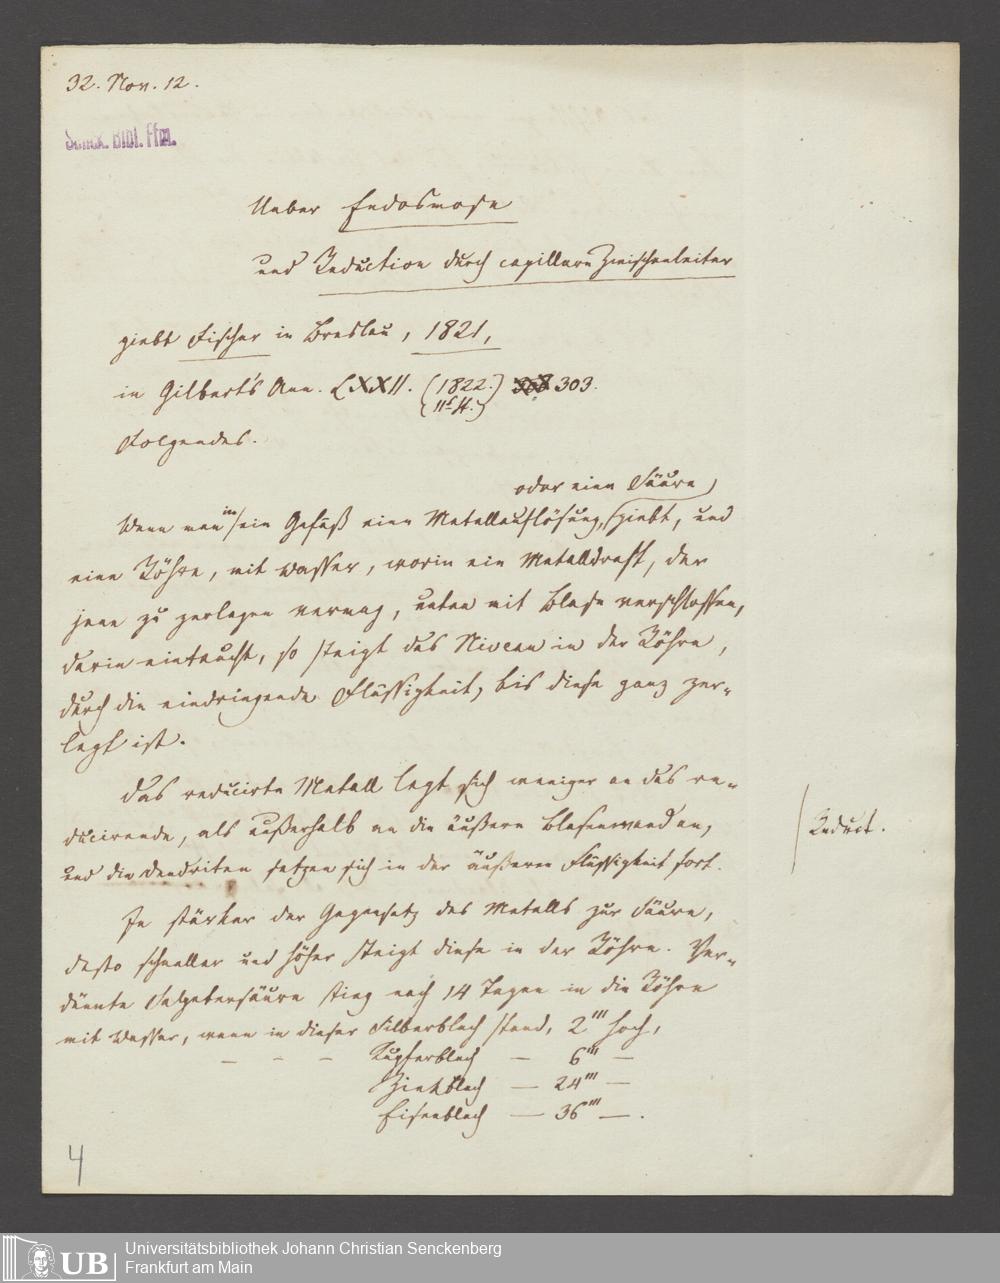 32. Nov. 12.
Senck. Bibl. Ffm.
Ueber Endosmose
und Reduction durch capillare Zwischenleiter
giebt Fischer in Breslau, 1821,
in Gilbert's Ann. LXXII. (1822.) 303.
(11s H.)
Folgendes.
oder eine Säure
Wenn man in ein Gefäß eine Metallauflösung, giebt, und
eine Röhre, mit Wasser, worin ein Metalldraht, der
jene zu zerlegen vermag, unten mit Blase verschlossen,
darin eintaucht, so steigt das Niveau in der Röhre,
durch die eindringende Flüssigkeit, bis diese ganz zer-
legt ist.
Das reducirte Metall legt sich weniger an das re-
ducirende, als außerhalb an die äußere Blasenwand an,
und die Dendriten setzen sich in der äußeren Flüssigkeit fort.
Reduct.
Je stärker der Gegensatz des Metalls zur Säure,
desto schneller und höher steigt diese in der Röhre. Ver-
dünnte Salpetersäure stieg nach 14 Tagen in die Röhre
mit Wasser, wenn in dieser Silberblech stand, 2''' hoch,
– – – Kupferblech — 6''' —
Zinkblech — 24''' —
Eisenblech — 36''' —.
4
UB
Universitätsbibliothek Johann Christian Senckenberg
Frankfurt am Main